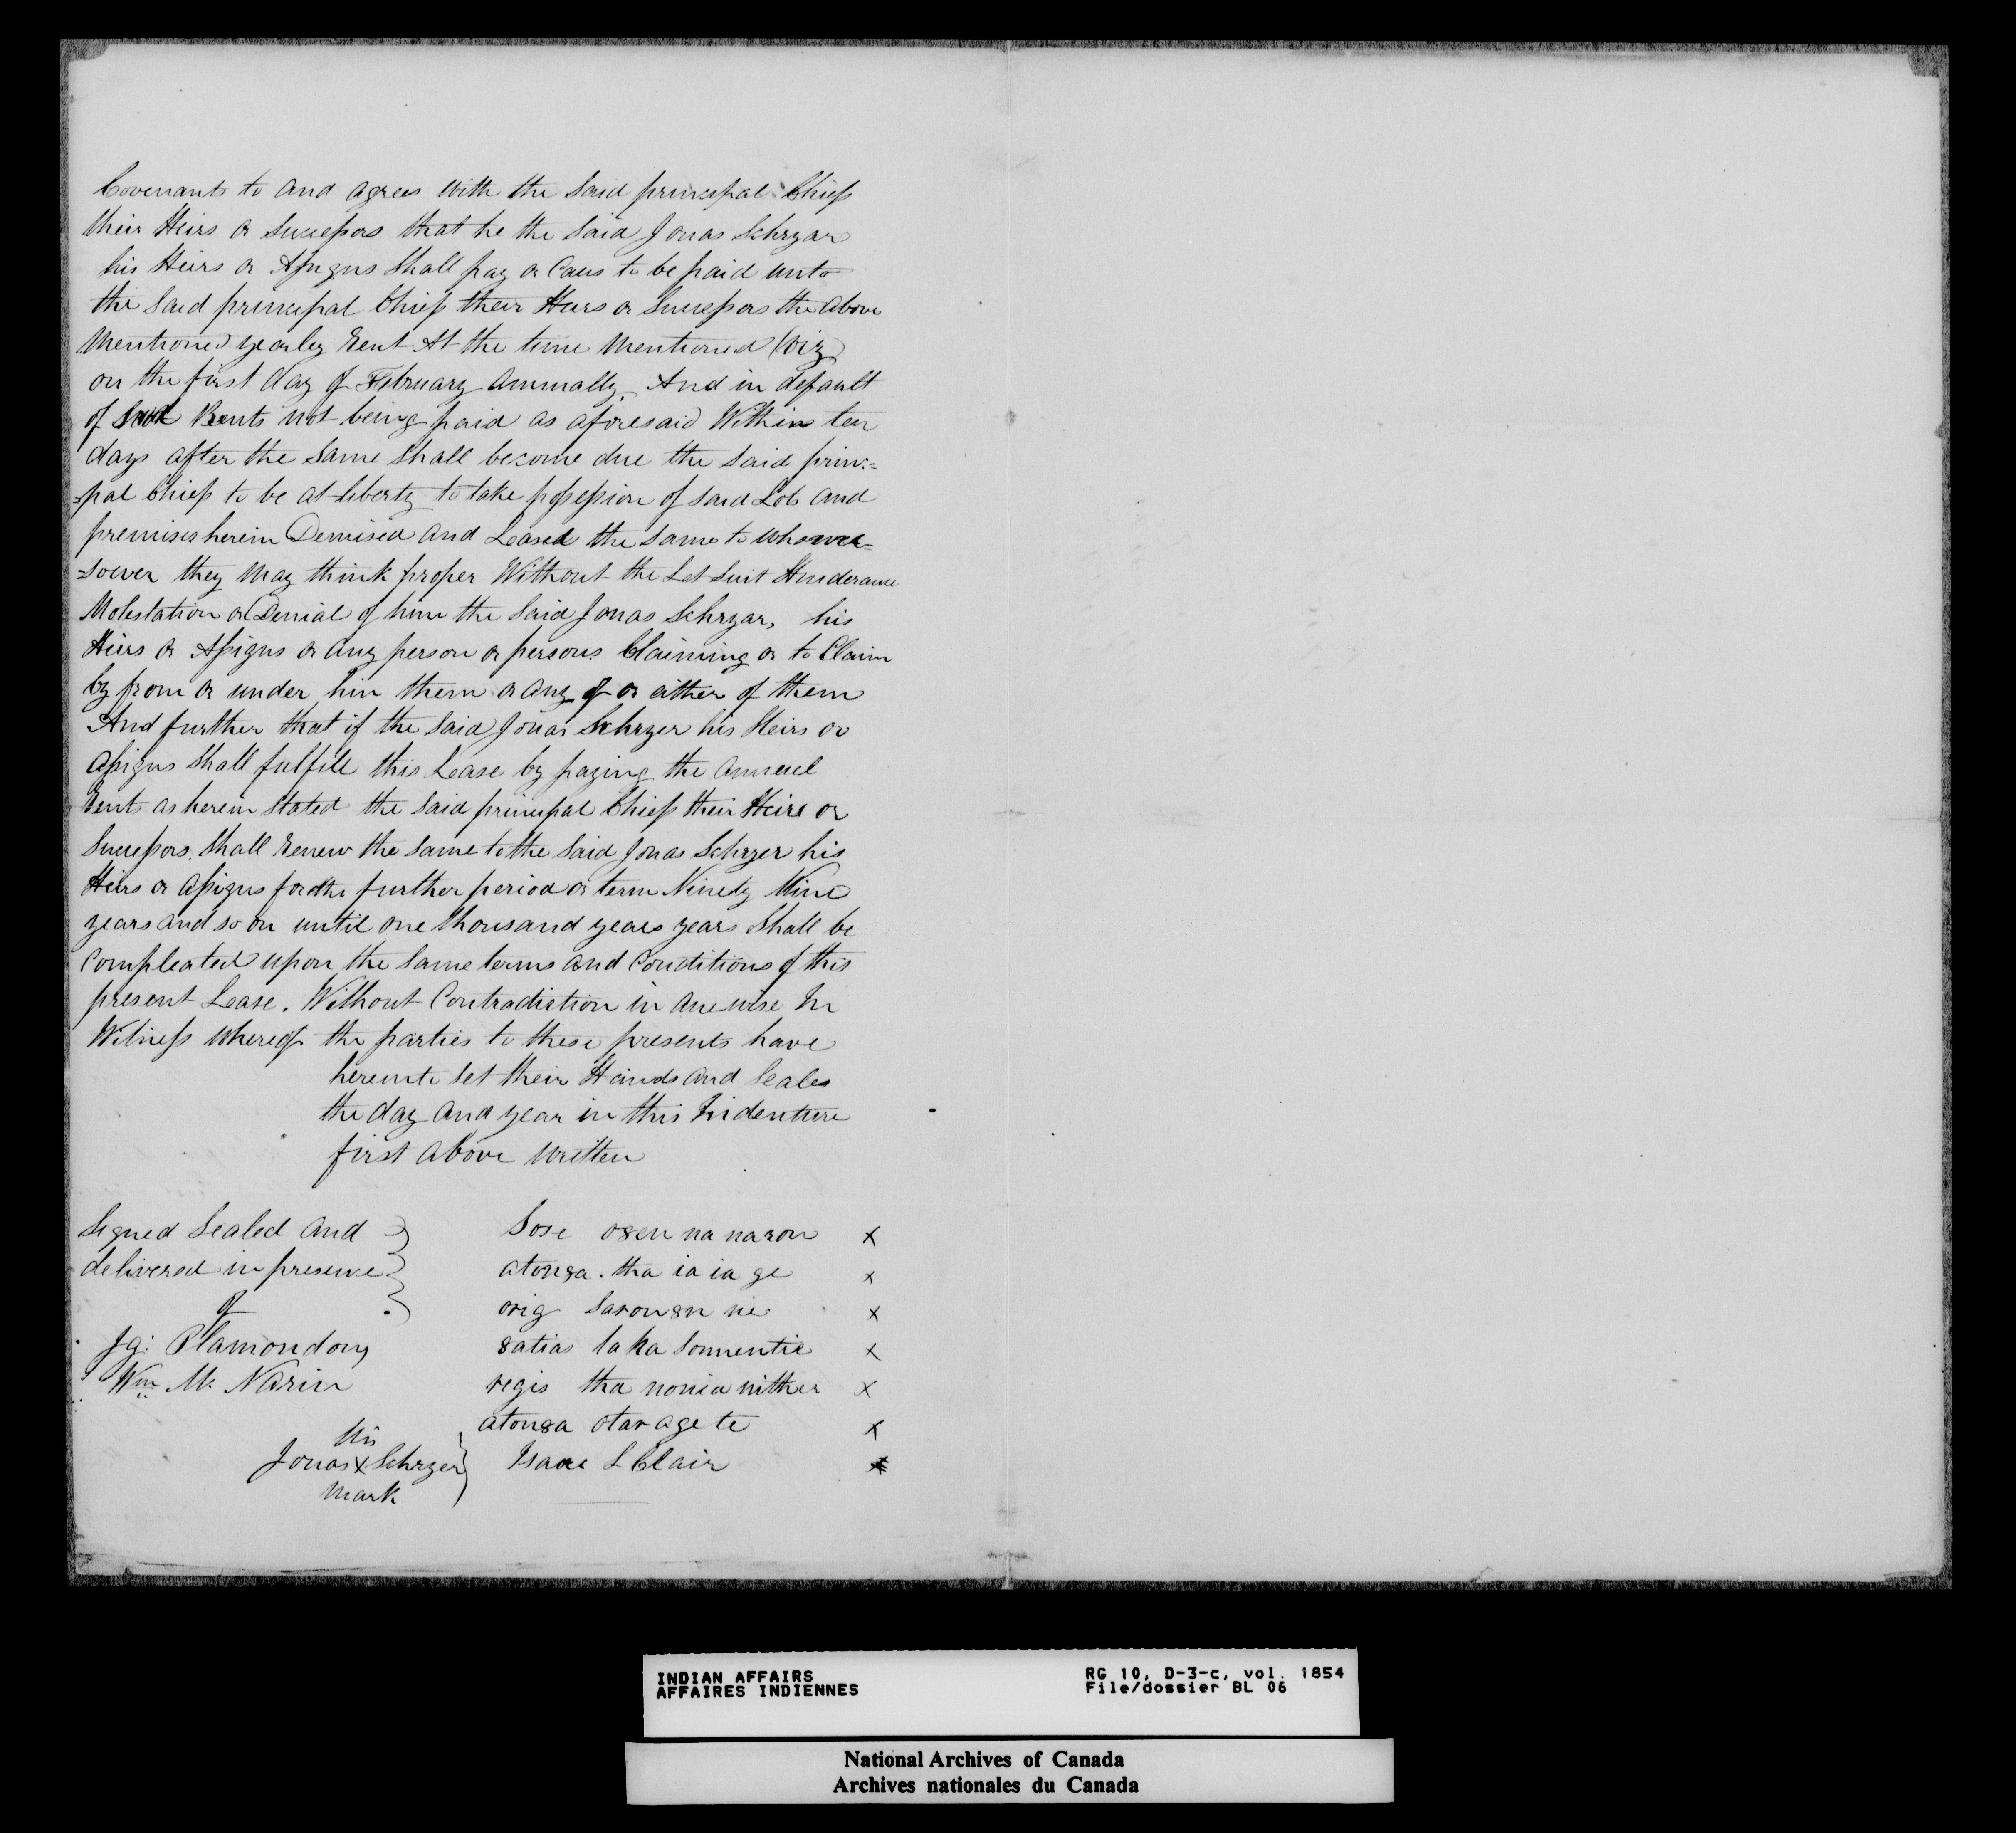 Covenants to and agrees with the Said principal Chiefs
their Heirs or Successors that he the Said Jonas Schryar
his Heirs or Assigns Shall pay or Caus to be paid unto
the Said principal Chiefs their Heirs or Successors the above
Mentioned yearley Rent At the time Mentioned (Viz)
on the first day of February Annually. And in default
of such Rents not being paid as aforesaid Within ten
days after the Same Shall become due the Said princ=
=pal Chiefs to be at liberty to take possession of Said Lots and
premises herein Demised and Leased the Same to whome=
=soever they May think proper Without the Let Suit Hinderance
Molestation or Denial of him the Said Jonas Schryar, his
Heirs or Assigns or any person or persons Claiming or to Claim
by from or under him them or any of or either of them
And further that if the Said Jonas Schryer his Heirs or
Assigns Shall fulfill this Lease by paying the Annual
Rents as herein Stated the Said principal Chiefs their Heirs or
Successors Shall Renew the Same to the Said Jonas Schryer his
Heirs or Assigns for the further period or term Ninety Nine
years and so on until one thousand years years Shall be
Compleated upon the Same terms and Conditions of this
present Lease. Without Contradiction in Anewise In
Witness Whereof the parties to these presents have
hereunto Set their Hands and Seales
the day and year in this Indenture
first above written
Signed Sealed and
delivered in presence
of
Jg: Plamondon
Wm Mc Narin
Sose o8en na naron x
aton8a. tha ia ia ge x
orig Saron8n ne x
8atias taka Sonnentie x
regis tha nonia nither x
aton8a otar age te x
Isaac L Clair x
his
Jonas x Schryer
Mark
INDIAN AFFAIRS RG 10, D-3-c, vol. 1854
AFFAIRES INDIENNES File/dossier BL 06
National Archives of Canada
Archives nationales du Canada